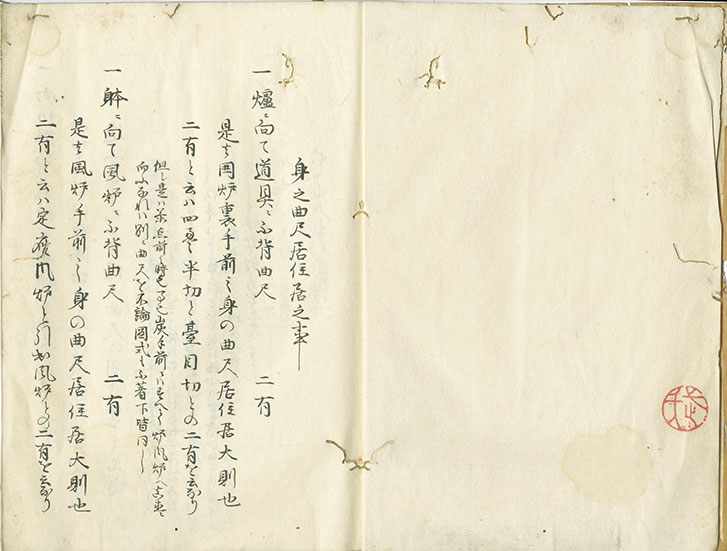 身之曲尺居住居之事
一 爐ニ向て道具ニふ背曲尺 二有
是ハ囲炉裏手前之身の曲尺居住居大則也
二有と云ハ四畳半切と臺目切との二有を云なり
但し是ハ茶点前之時也 炭手前ハ 炉風炉
向 別ニ曲尺を不論図式 ふ著下皆同し
一 躰ニ向て風炉ニふ背曲尺 二有
是ハ風炉手前之身の曲尺居住居大則也
二有と云ハ定座風炉と引出風炉との二有を云なり